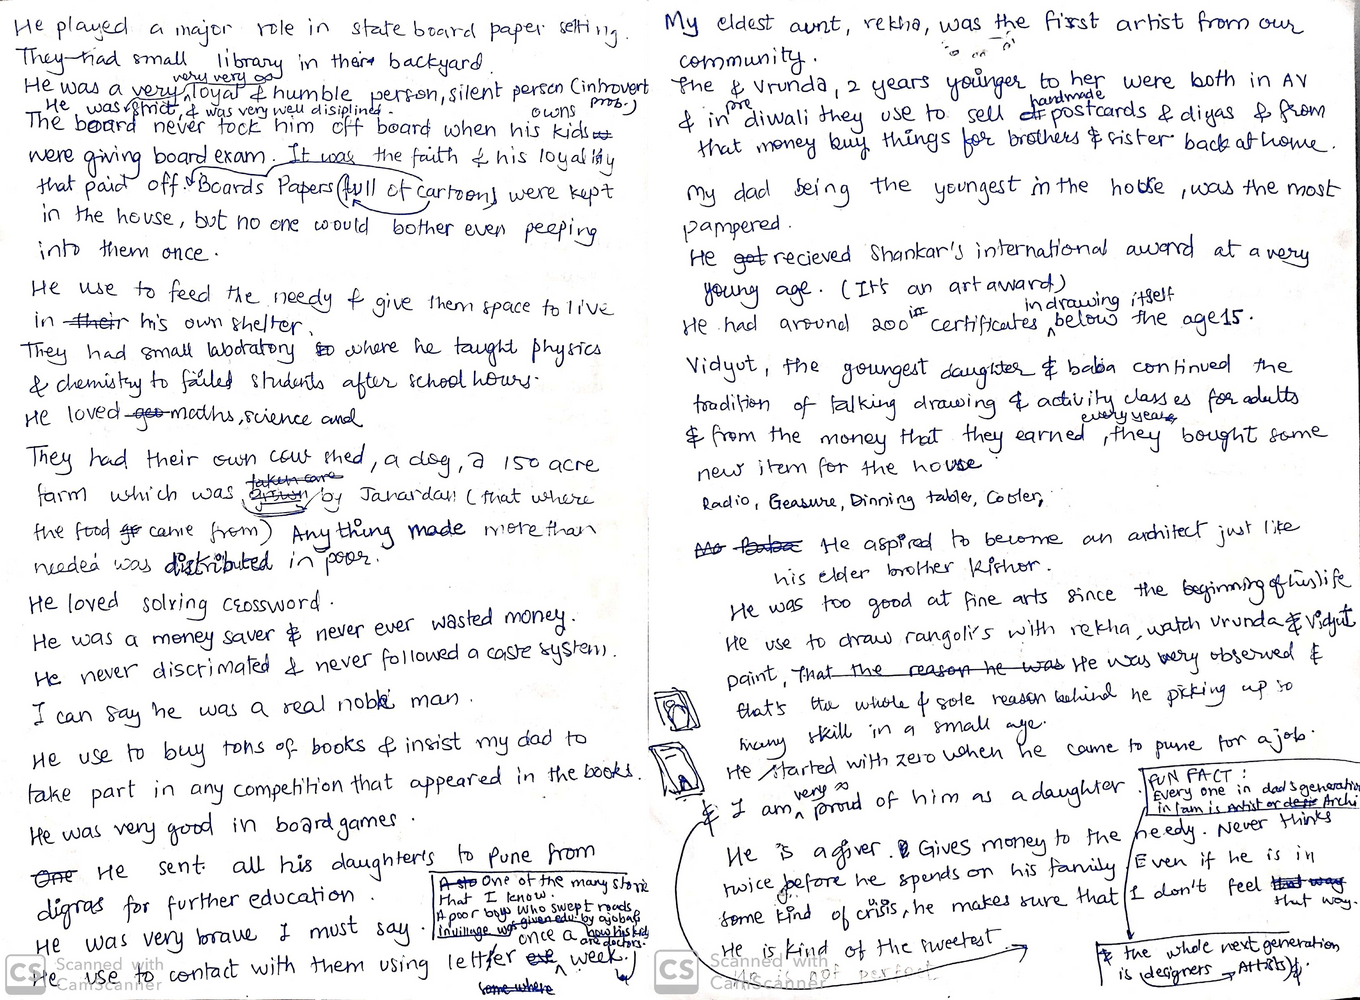 He played a major role in state board paper setting.
They had small library in their backyard.
He was a very, very very loyal & humble person, silent person (introvert prob.)
He was strict, & was very well disiplined.
The board never tock him off board when his owns kids
were giving board exam. It was the faith & his loyality
that paid off. Boards Papers (full of cartoons) were kept
in the house, but no one would bother even peeping
into them once.
He use to feed the needy & give them space to live
in their his own shelter.
They had small labdratory so where he taught physics
& chemistry to failed students after school hours.
He loved geo maths, science and
They had their own cow shed, a dog, a 150 acre
farm which was taken care grown by Janardan (that where
the food came from) Anything made more than
needed was distributed in poor.
He loved solving crossword.
He was a money saver & never ever wasted money.
He never discrimated & never followed a caste system.
I can say he was a real noble man.
He use to buy tons of books & insist my dad to
take part in any competition that appeared in the books.
He was very good in board games.
One He sent all his daughter's to Pune from
digras for further education.
He was very brave I must say.
He use to contact with them using letter once a week.
some where
A sto One of the many storie
that I know.
A poor boy who swept roads
in village was given edu. by ajoba &
now his kids
are doctors.
My eldest aunt, rekha, was the first artist from our
community.
She & Vrunda, 2 years younger to her were both in AV
& in pre diwali they use to sell of handmade postcards & diyas & from
that money buy things for brothers & sister back at home.
My dad being the youngest in the house, was the most
pampered.
He got recieved Shankar's international award at a very
young age. (It's an art award)
He had around 200 certificates in drawing itself below the age 15.
Vidyut, the youngest daughter & baba continued the
tradition of talking drawing & activity classes for adults
& from the money that they earned every year, they bought some
new item for the house
Radio, Geasure, Dinning table, Cooler,
Mo Baba He aspired to become an architect just like
his elder brother Kishor.
He was too good at fine arts since the beginning of his life
He use to draw rangoli's with rekha, watch vrunda & Vidyut
paint, That the reason he was He was very observed &
that's the whole & sole reason behind he picking up so
many skill in a small age.
He started with zero when he came to pune for a job.
& I am very proud of him as a daughter.
FUN FACT:
Every one in dad's generation
in fam is Artist or des Archi
He is a giver. Gives money to the needy. Never thinks
twice before he spends on his family Even if he is in
some kind of crisis, he makes sure that I don't feel that way
that way.
He is kind of the sweetest.
He is not perfect
& the whole next generation
is designers Artists
CS Scanned with CamScanner
CS Scanned with CamScanner